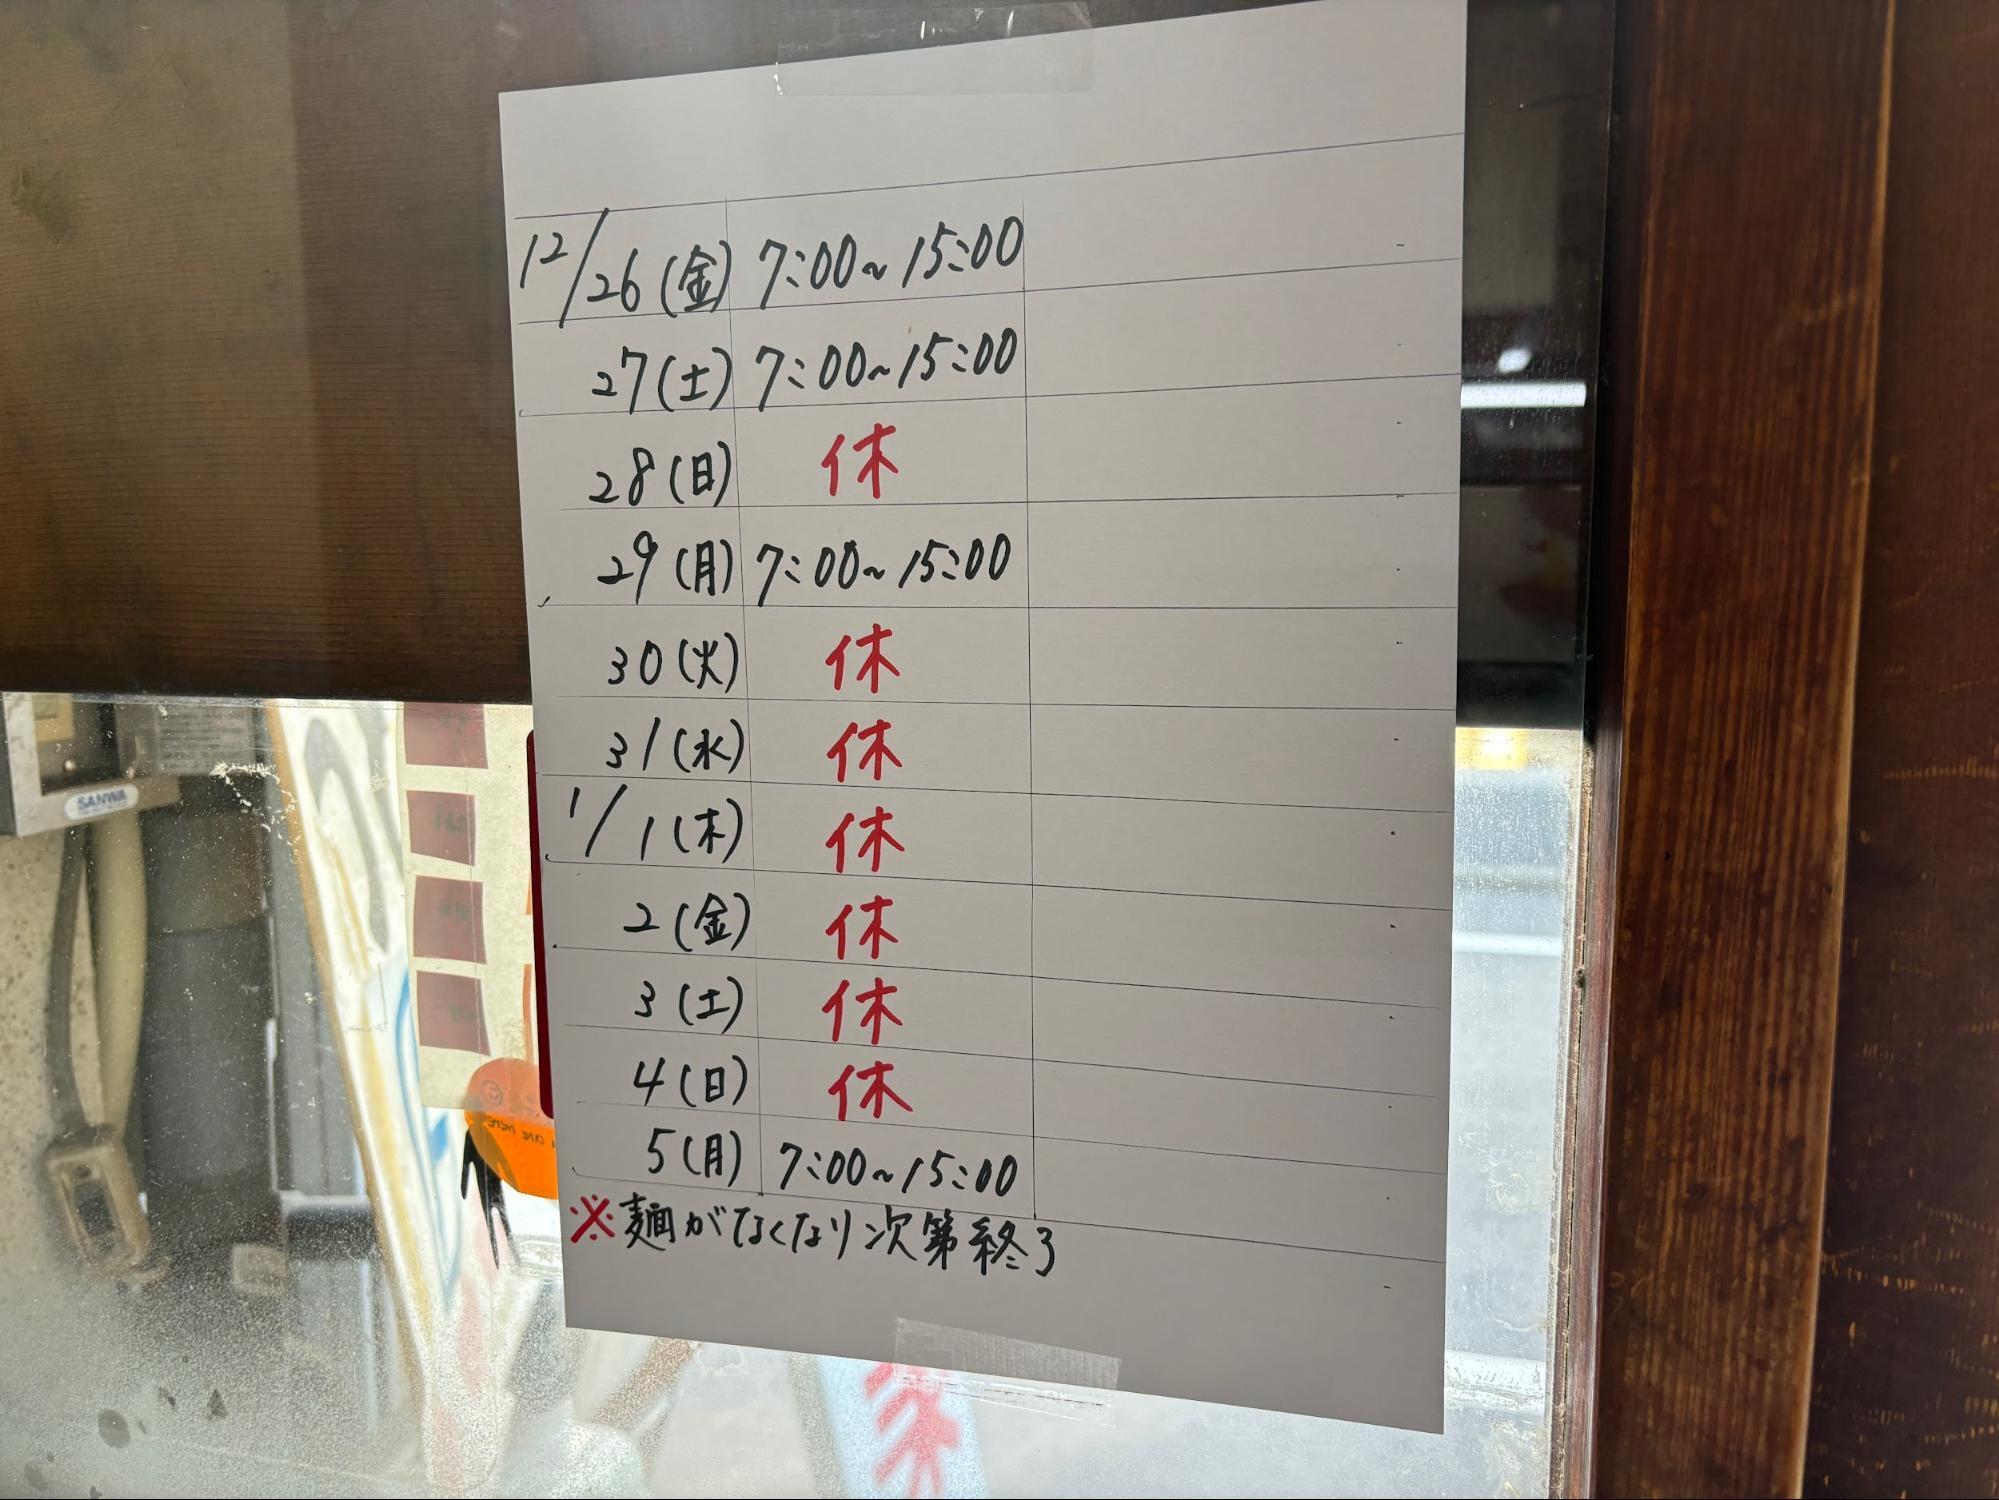 12/26(金) 7:00~15:00
27(土) 7:00~15:00
28(日) 休
29(月) 7:00~15:00
30(火) 休
31(水) 休
1/1(木) 休
2(金) 休
3(土) 休
4(日) 休
5(月) 7:00~15:00
※麺がなくなり次第終了
SANWA